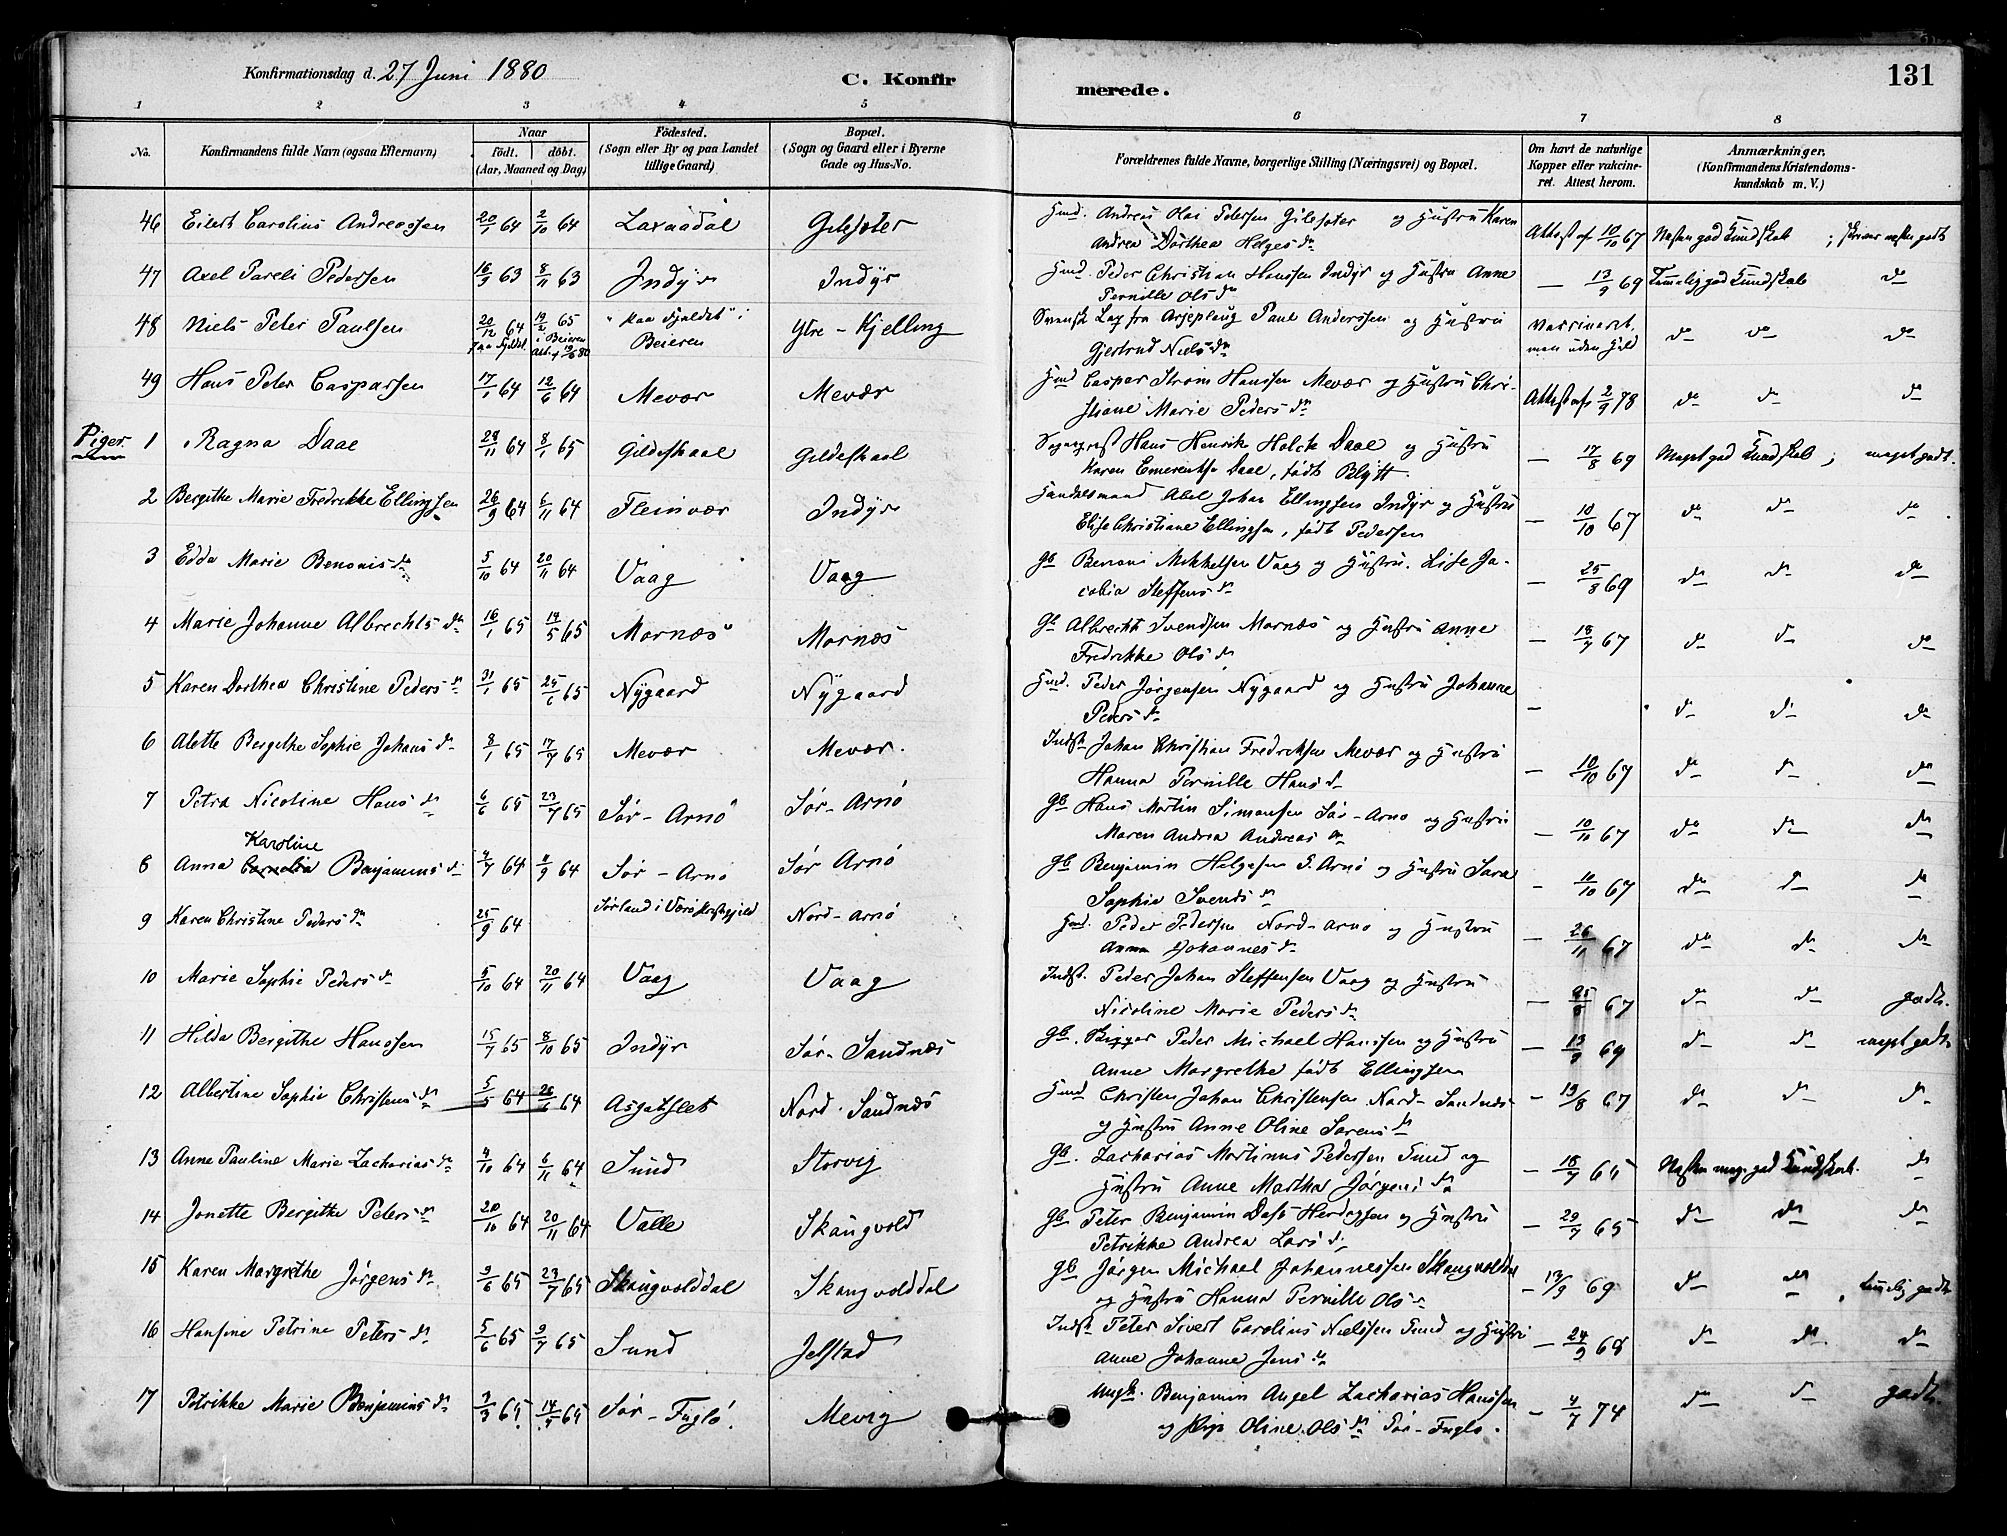 Konfirmationsdag d. 27 Juni 1880
C. Konfirmerede.
131
1 2 3 4 5 6 7 8
No.
Konfirmandens fulde Navn (ogsaa Efternavn)
Naar
Födt. döbt.
(Aar, Maaned og Dag)
Födested.
(Sogn eller By og paa Landet tillige Gaard)
Bopæl.
(Sogn og Gaard eller i Byerne Gade og Hus-No.
Forældrenes fulde Navne, borgerlige Stilling (Næringsvei) og Bopæl.
Om havt de naturlige Kopper eller vakcineret. Attest herom.
Anmærkninger,
(Konfirmandens Kristendomskundskab m. V.)
46 Eilert Carolius Andreassen 20/1 64 2/10 64 Laxaadal Gilesæter Hmd. Andreas Olai Pedersen Gilesæter og Hustru Karen Attest af 10/10 67 Næsten god Kundskab ; skriver næsten godt
Andrea Dorthea Helgesdn
47 Axel Pareli Pedersen 16/9 63 8/11 63 Indyr Indyr Hmd. Peder Christian Hanssen Indyr og Hustru Anne — 13/9 69 Temmelig god Kundskab do
Pernille Olsdn
48 Niels Peter Paulsen 20/12 64 19/2 65 "paa fjeldet" i Ytre-Kjelling Svensk Lap fra Arjeplaug Paul Anderssen og Hustru Vaccineret, do do do
paa fjeldet i Beieren Beieren Gjertrud Nielsdn men uden Held
49 Hans Peter Caspersen 17/1 64 12/6 64 Mevær Mevær Hmd Casper Strøm Hanssen Mevær og Hustru Chri- Attest af 2/9 78 do do do
stiane Marie Pedersdn
Piger
1 Ragna Daae 28/11 64 8/1 65 Gildeskaal Gildeskaal Sogneprest Hans Henrik Holck Daae og Hustru — 17/8 69 Meget god Kundskab ; meget godt.
Karen Emerentse Daae, født Blytt
2 Bergithe Marie Fredrikke Ellingsen 26/9 64 6/11 64 Fleinvær Indyr Handelsmand Abel Johan Ellingsen Indyr og Hustru — 10/10 67 do do do
Elise Christiane Ellingsen, født Pedersen
3 Edda Marie Benonisdn 5/10 64 20/11 64 Vaag Vaag Gb Benoni Mikkelsen Vaag og Hustru Lise Ja- — 25/8 69 do do do
cobia Steffensdn
4 Marie Johanne Albrechtsdn 16/1 65 14/5 65 Mornæs Mornæs Gb Albrecht Svendsen Mornæs og Hustru Anne — 18/7 67 do do do
Fredrikke Olsdn
5 Karen Dorthea Christine Pedersdn 31/1 65 25/6 65 Nygaard Nygaard Hmd. Peder Jørgensen Nygaard og Hustru Johanne — do do do
Pedersdn
6 Alette Bergithe Sophie Johansdn 8/1 65 17/4 65 Mevær Mevær. Indst Johan Christian Fredriksen Mevær og Hustru — 10/10 67 do do do
Hanna Pernille Hansdn
7 Petra Nicoline Hansdn 6/6 65 23/7 65 Sør-Arnø Sør-Arnø Gb Hans Martin Simonsen Sør-Arnø og Hustru — 10/10 67 do do do
Maren Andrea Andreasdn
Karoline
8 Anna Cornelia Benjaminsdn 4/7 64 4/9 64 Sør-Arnø Sør Arnø Gb Benjamin Helgesen S. Arnø og Hustru Sara — 10/10 67 do do do
Sophie Svendsdn
9 Karen Christine Pedersdn 25/9 64 Sørland i Værø Prestegjeld Nord-Arnø Hmd. Peder Pedersen Nord-Arnø og Hustru — 26/11 67 do do do
Anna Johannesdn
10 Marie Sophie Pedersdn 5/10 64 20/11 64 Vaag Vaag Indst. Peder Johan Steffensen Vaag og Hustru — 25/8 67 do do godt.
Nicoline Marie Pedersdn
11 Hilda Bergithe Hanssen 15/7 65 8/10 65 Indyr Sør-Sandnæs Gb. Peder Michael Hanssen og Hustru — 13/9 69 do do meget godt
Anne Margrethe født Ellingsen
12 Albertine Sophie Christensdn 5/5 64 26/6 64 Asgotflet Nord-Sandnæs Hmd Christen Johan Christensen Nord-Sandnæs — 13/8 67 do do do
og Hustru Anne Oline Sørensdn
13 Anne Pauline Marie Zachariasdn 4/10 64 6/11 64 Sund Storvig Gb. Zacharias Martinus Pedersen Sund og — 18/7 65 Næsten meg. god Kundskab. do
Hustru Anne Martha Jørgensdn
14 Jonette Bergitte Petersdn 20/10 64 20/11 64 Valle Skaugvold Gb Peter Benjamin Dass Herdessen og Hustru — 29/7 65 do do do
Petrikke Andrea Larsdn
15 Karen Margrethe Jørgensdn 9/6 65 23/7 65 Skaugvolddal Skaugvolddal Gb Jørgen Michael Johannessen Skaugvolddal — 13/9 69 do do temmelig godt
og Hustru Hanna Pernille Olsdn
16 Hansine Petrine Petersdn 5/6 65 9/7 65 Sund Jelstad Indst Peter Sivert Carolius Nielssen Sund og Hustru — 24/9 68 do do do
Anne Johanne Jensdn
17 Petrikke Marie Benjaminsdn 3/3 65 14/5 65 Sør-Fuglø. Mevig Ungk. Benjamin Angel Zacharias Hanssen — 4/7 74 do do godt.
og Pige Oline Olsdn Sør-Fuglø.